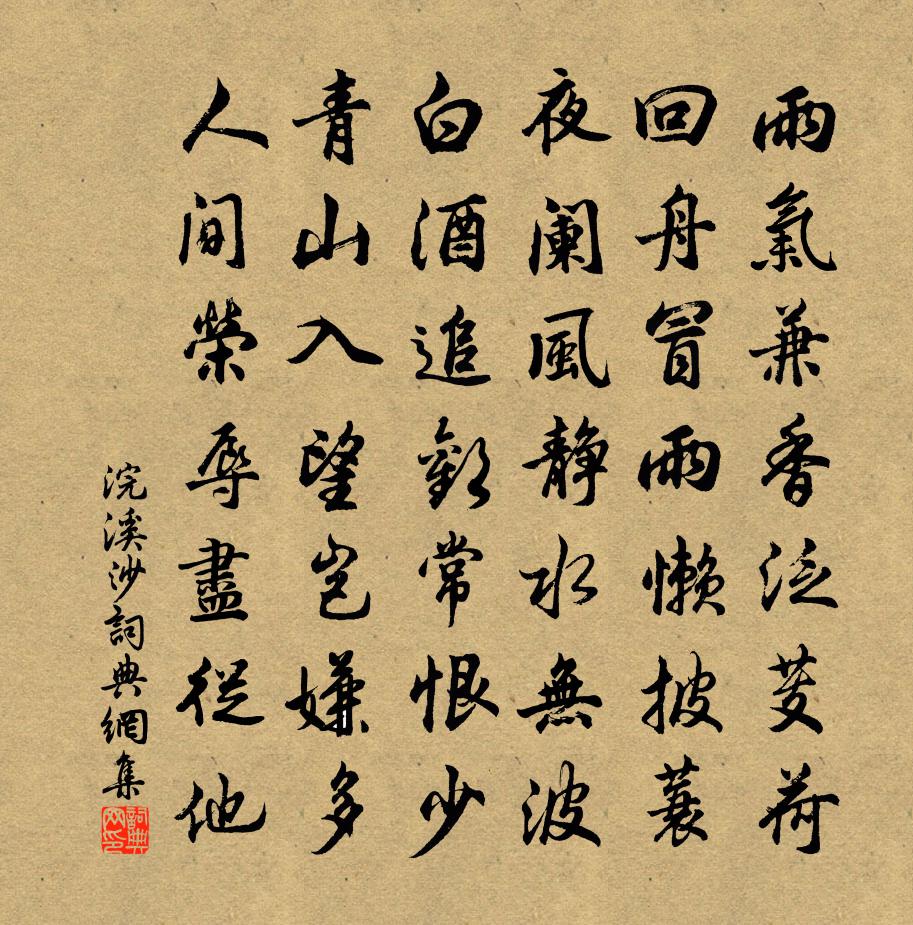 雨氣兼香泛芰荷
回舟冒雨懶披蓑
夜闌風静水無波
白酒追歡常恨少
青山入望豈嫌多
人間榮辱盡從他
浣溪沙詞典網集
詞典网印